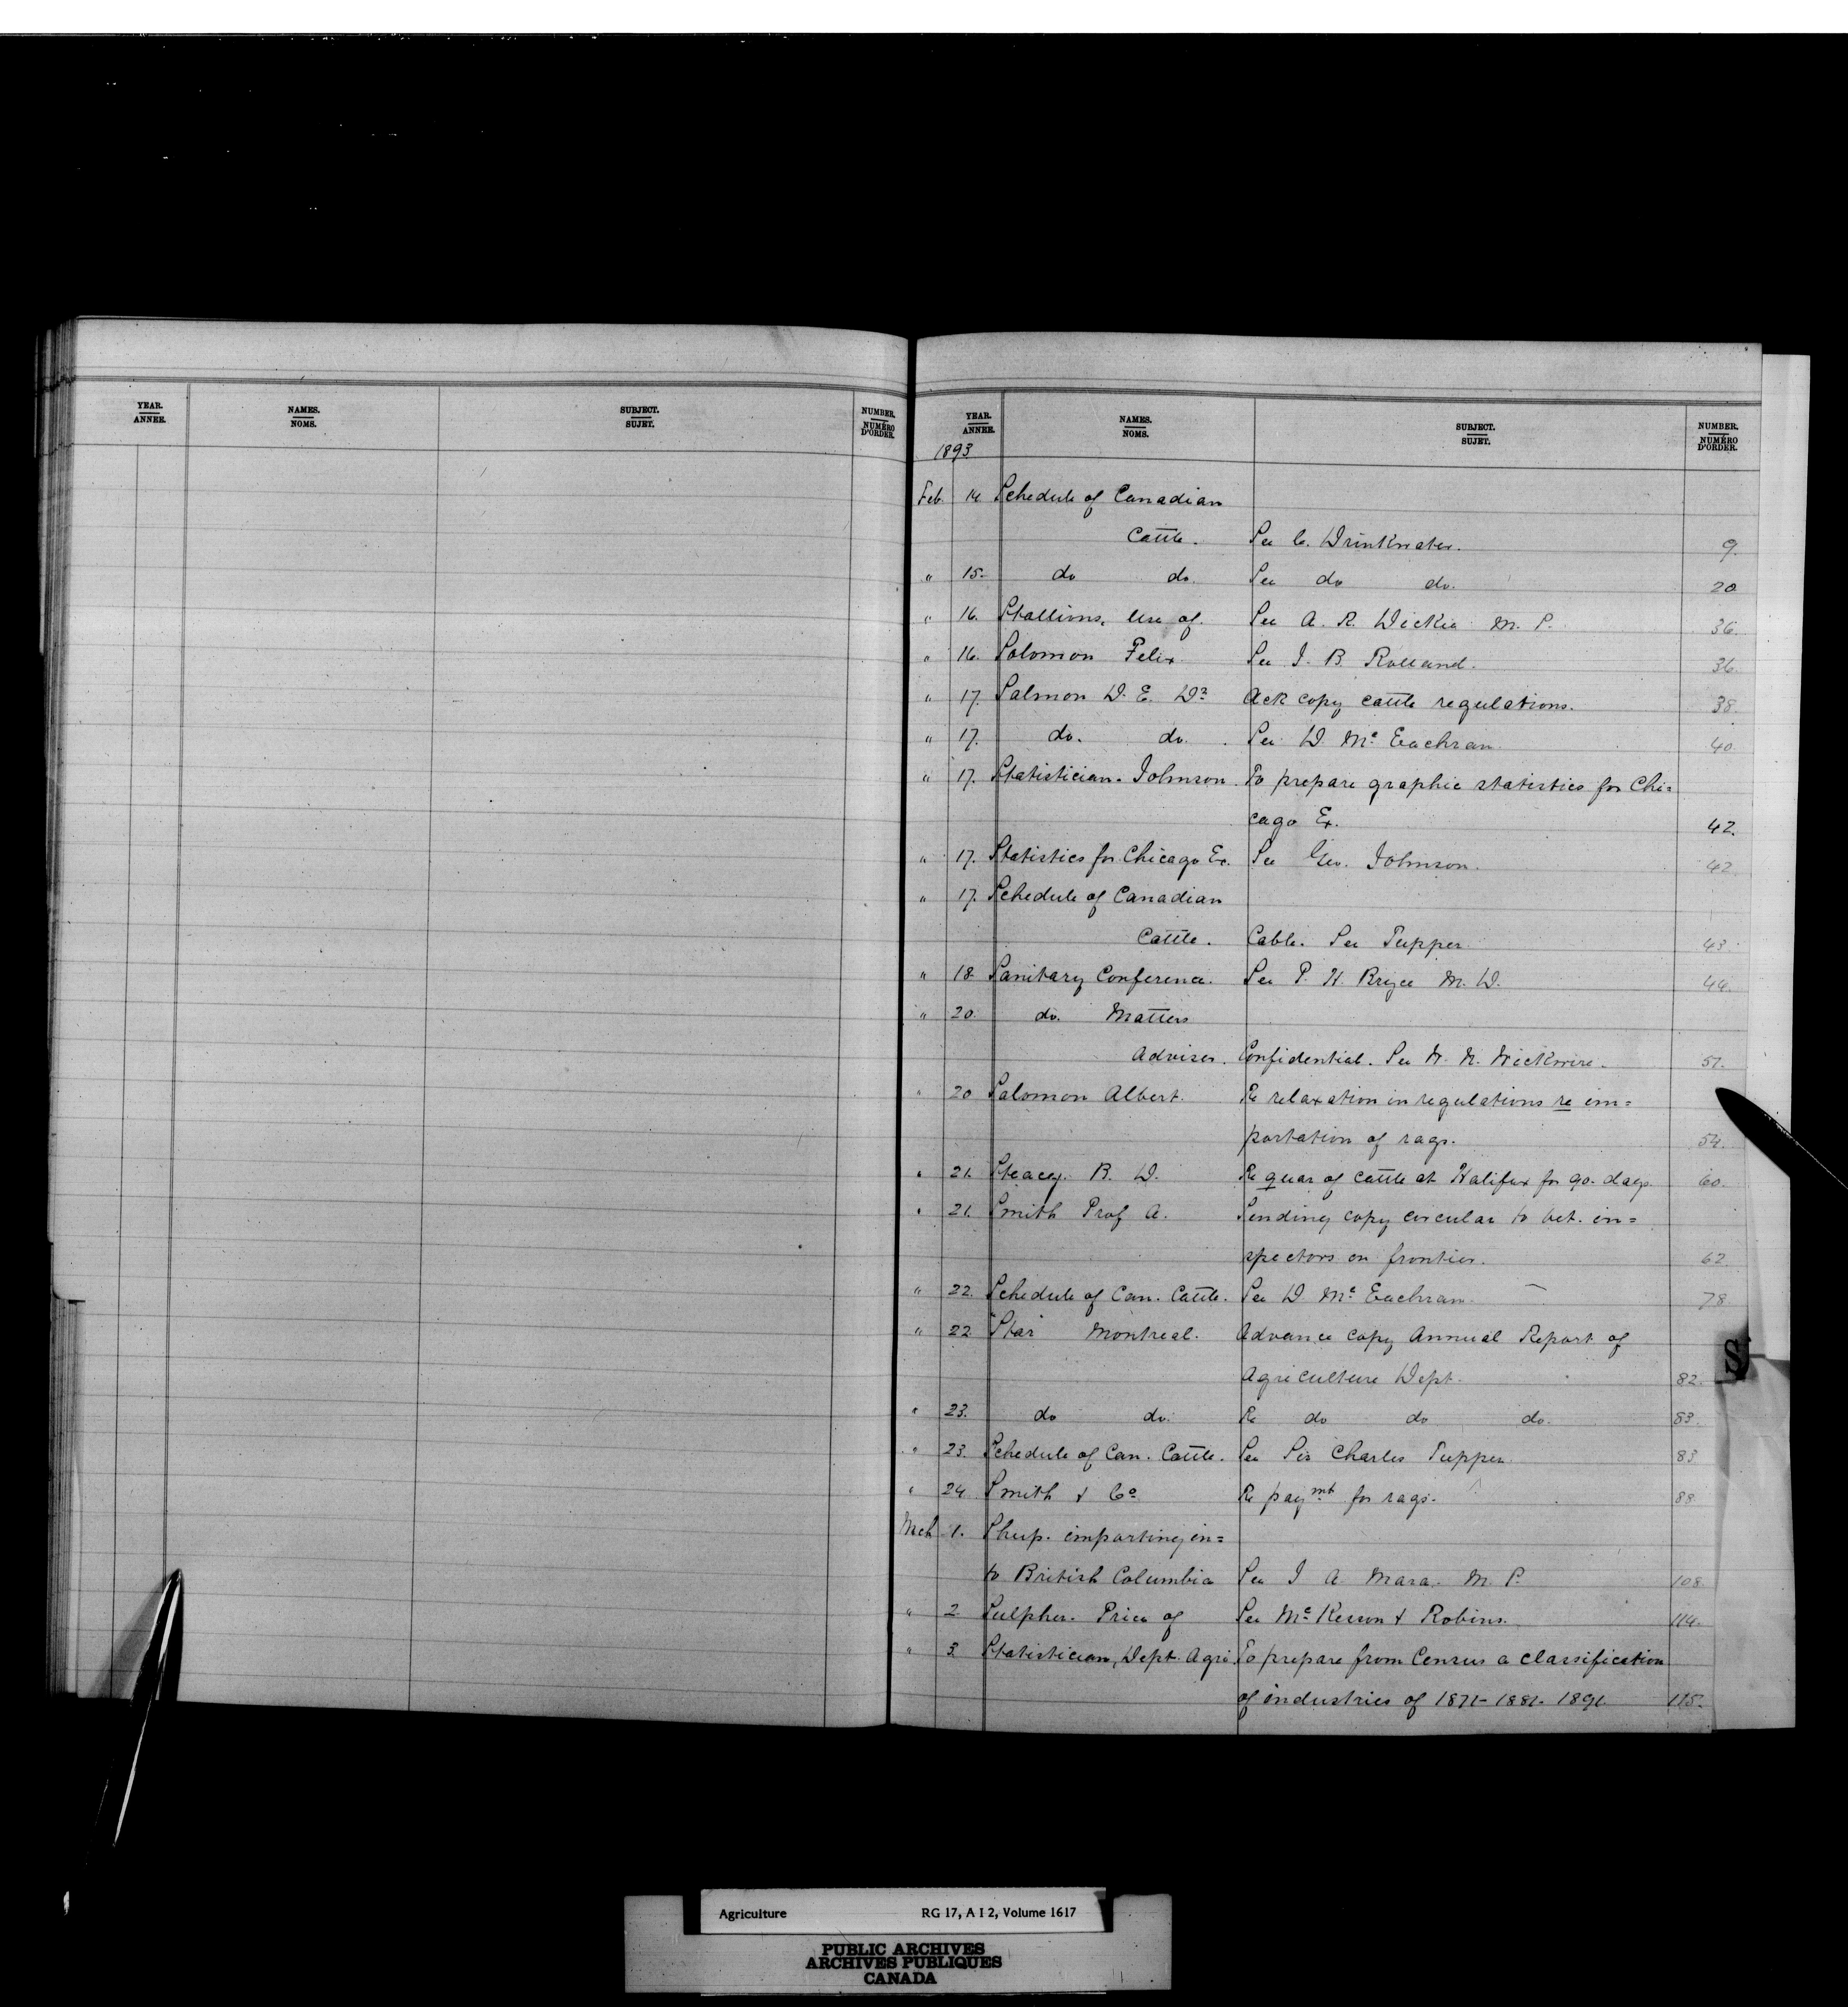 YEAR. NAMES. SUBJECT. NUMBER.
ANNEE. NOMS. SUJET. NUMÉRO D'ORDER.
YEAR. NAMES. SUBJECT. NUMBER.
ANNEE. NOMS. SUJET. NUMÉRO D'ORDER.
1893
Feb. 14 Schedule of Canadian
Cattle. See C. Drinkwater. 9.
" 15. do do. See do do. 20
" 16. Stallions, use of. See A. R. Dickie M. P. 36.
" 16. Solomon Felix. See J. B. Rolland. 36.
" 17. Salmon D. E. Dr Ack copy cattle regulations. 38.
" 17. do. do. See D. Mc Eachran. 40.
" 17. Statistician. Johnson. To prepare graphic statistics for Chi=
cago Ex. 42.
" 17. Statistics for Chicago Ex. See Geo. Johnson. 42.
" 17. Schedule of Canadian
Cattle. Cable. See Tupper 43.
" 18 Sanitary Conference. See P. H. Bryce M. D. 44.
" 20. do. Matters
Adviser. Confidential. See W. N. Wickwire. 51.
" 20 Salomon Albert. Re relaxation in regulations re im=
portation of rags. 54.
" 21. Stacey. B. D. Re quar of cattle at Halifax for 90. days. 60.
" 21. Smith Prof A. Sending copy circular to vet. in=
spectors on frontier. 62
" 22. Schedule of Can. Cattle. See D. Mc Eachran. 78
" 22 "Star" Montreal. Advance copy Annual Report of
Agriculture Dept. 82.
" 23. do do. Re do do do. 83.
" 23. Schedule of Can. Cattle. See Sir Charles Tupper. 83
" 24 Smith & Co Re paymt for rags. 88
Mch 1. Sheep. importing in=
to British Columbia See J A. Mara. M. P. 108.
" 2 Sulpher. Price of See Mc Kesson & Robins. 114.
" 3 Statistician, Dept. Agri. To prepare from Census a classification
of industries of 1871-1881-1891 115.
S
Agriculture RG 17, A I 2, Volume 1617
PUBLIC ARCHIVES
ARCHIVES PUBLIQUES
CANADA